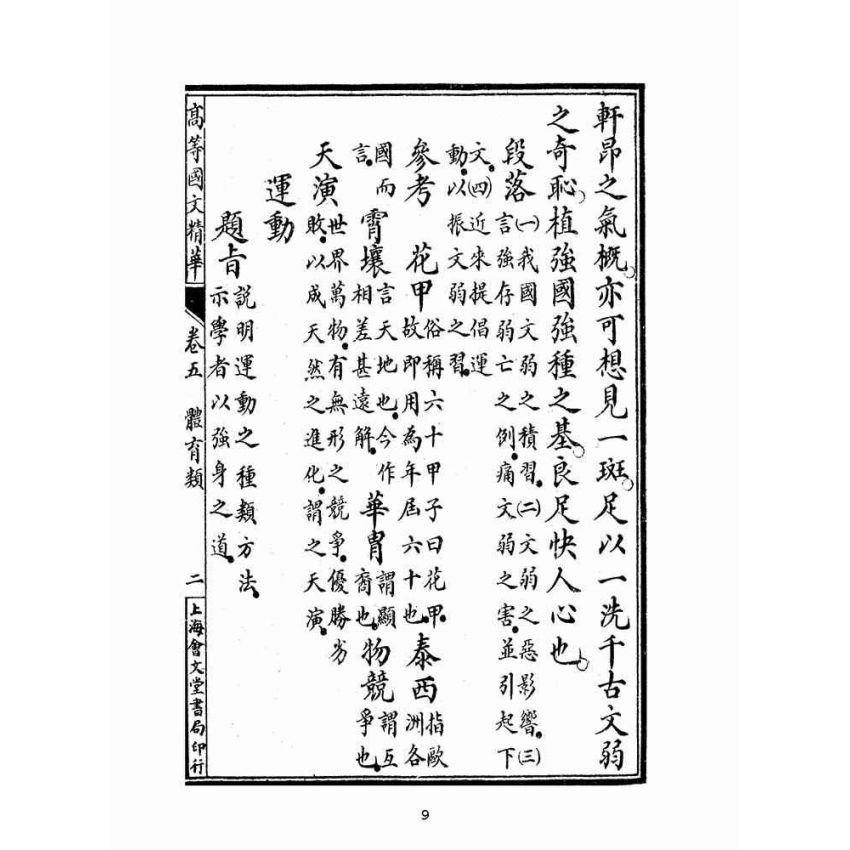 軒昂之氣概。亦可想見一斑。足以一洗千古文弱
之奇恥。植強國強種之基。良足快人心也。
段落 (一)我國文弱之積習。(二)文弱之惡影響。(三)
言強存弱亡之例。痛文弱之害。並引起下
文。(四)近來提倡運
動。以振文弱之習。
參考 花甲 俗稱六十甲子曰花甲。故即用為年屆六十也。 泰西 指歐洲各
國而言。 霄壤 言天地也。今作相差甚遠解。 華胄 謂顯裔也。 物競 謂互爭也。
天演 世界萬物。有無形之競爭。優勝劣
敗。以成天然之進化。謂之天演。
運動
題旨 說明運動之種類方法。
示學者以強身之道。
高等國文精華 卷五 體育類 二 上海會文堂書局印行
9